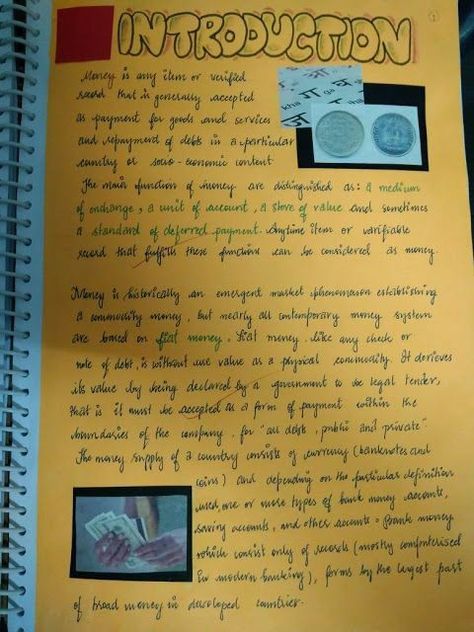 INTRODUCTION
Money is any item or verified
record that is generally accepted
as payment for goods and services
and repayment of debts in a particular
country or socio-economic context
The main function of money are distinguished as: a medium
of exchange, a unit of account, a store of value and sometimes
a standard of deferred payment. Anytime item or varifiable
record that fulfills these functions can be considered as money.
Money is historically an emergent market phenomenon establishing
a commodity money, but nearly all contemporary money system
are based on fiat money. Fiat money, like any check or
note of debt, is without use value as a physical commodity. It derieves
its value by being declared by a government to be legal tender,
that is it must be accepted as a form of payment within the
boundaries of the company, for "all debts, public and private".
The money supply of a country consists of currency (banknotes and
coins) and depending on the particular definition
used, one or more types of bank money accounts,
saving accounts, and other accounts. Bank money
which consist only of records (mostly computerised
in modern banking), forms by the largest part
of broad money in developed countries.
kha
ga